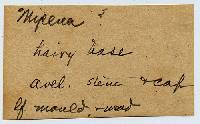 Mycena ?
hairy base
avel. stem & cap
lf mould & wood